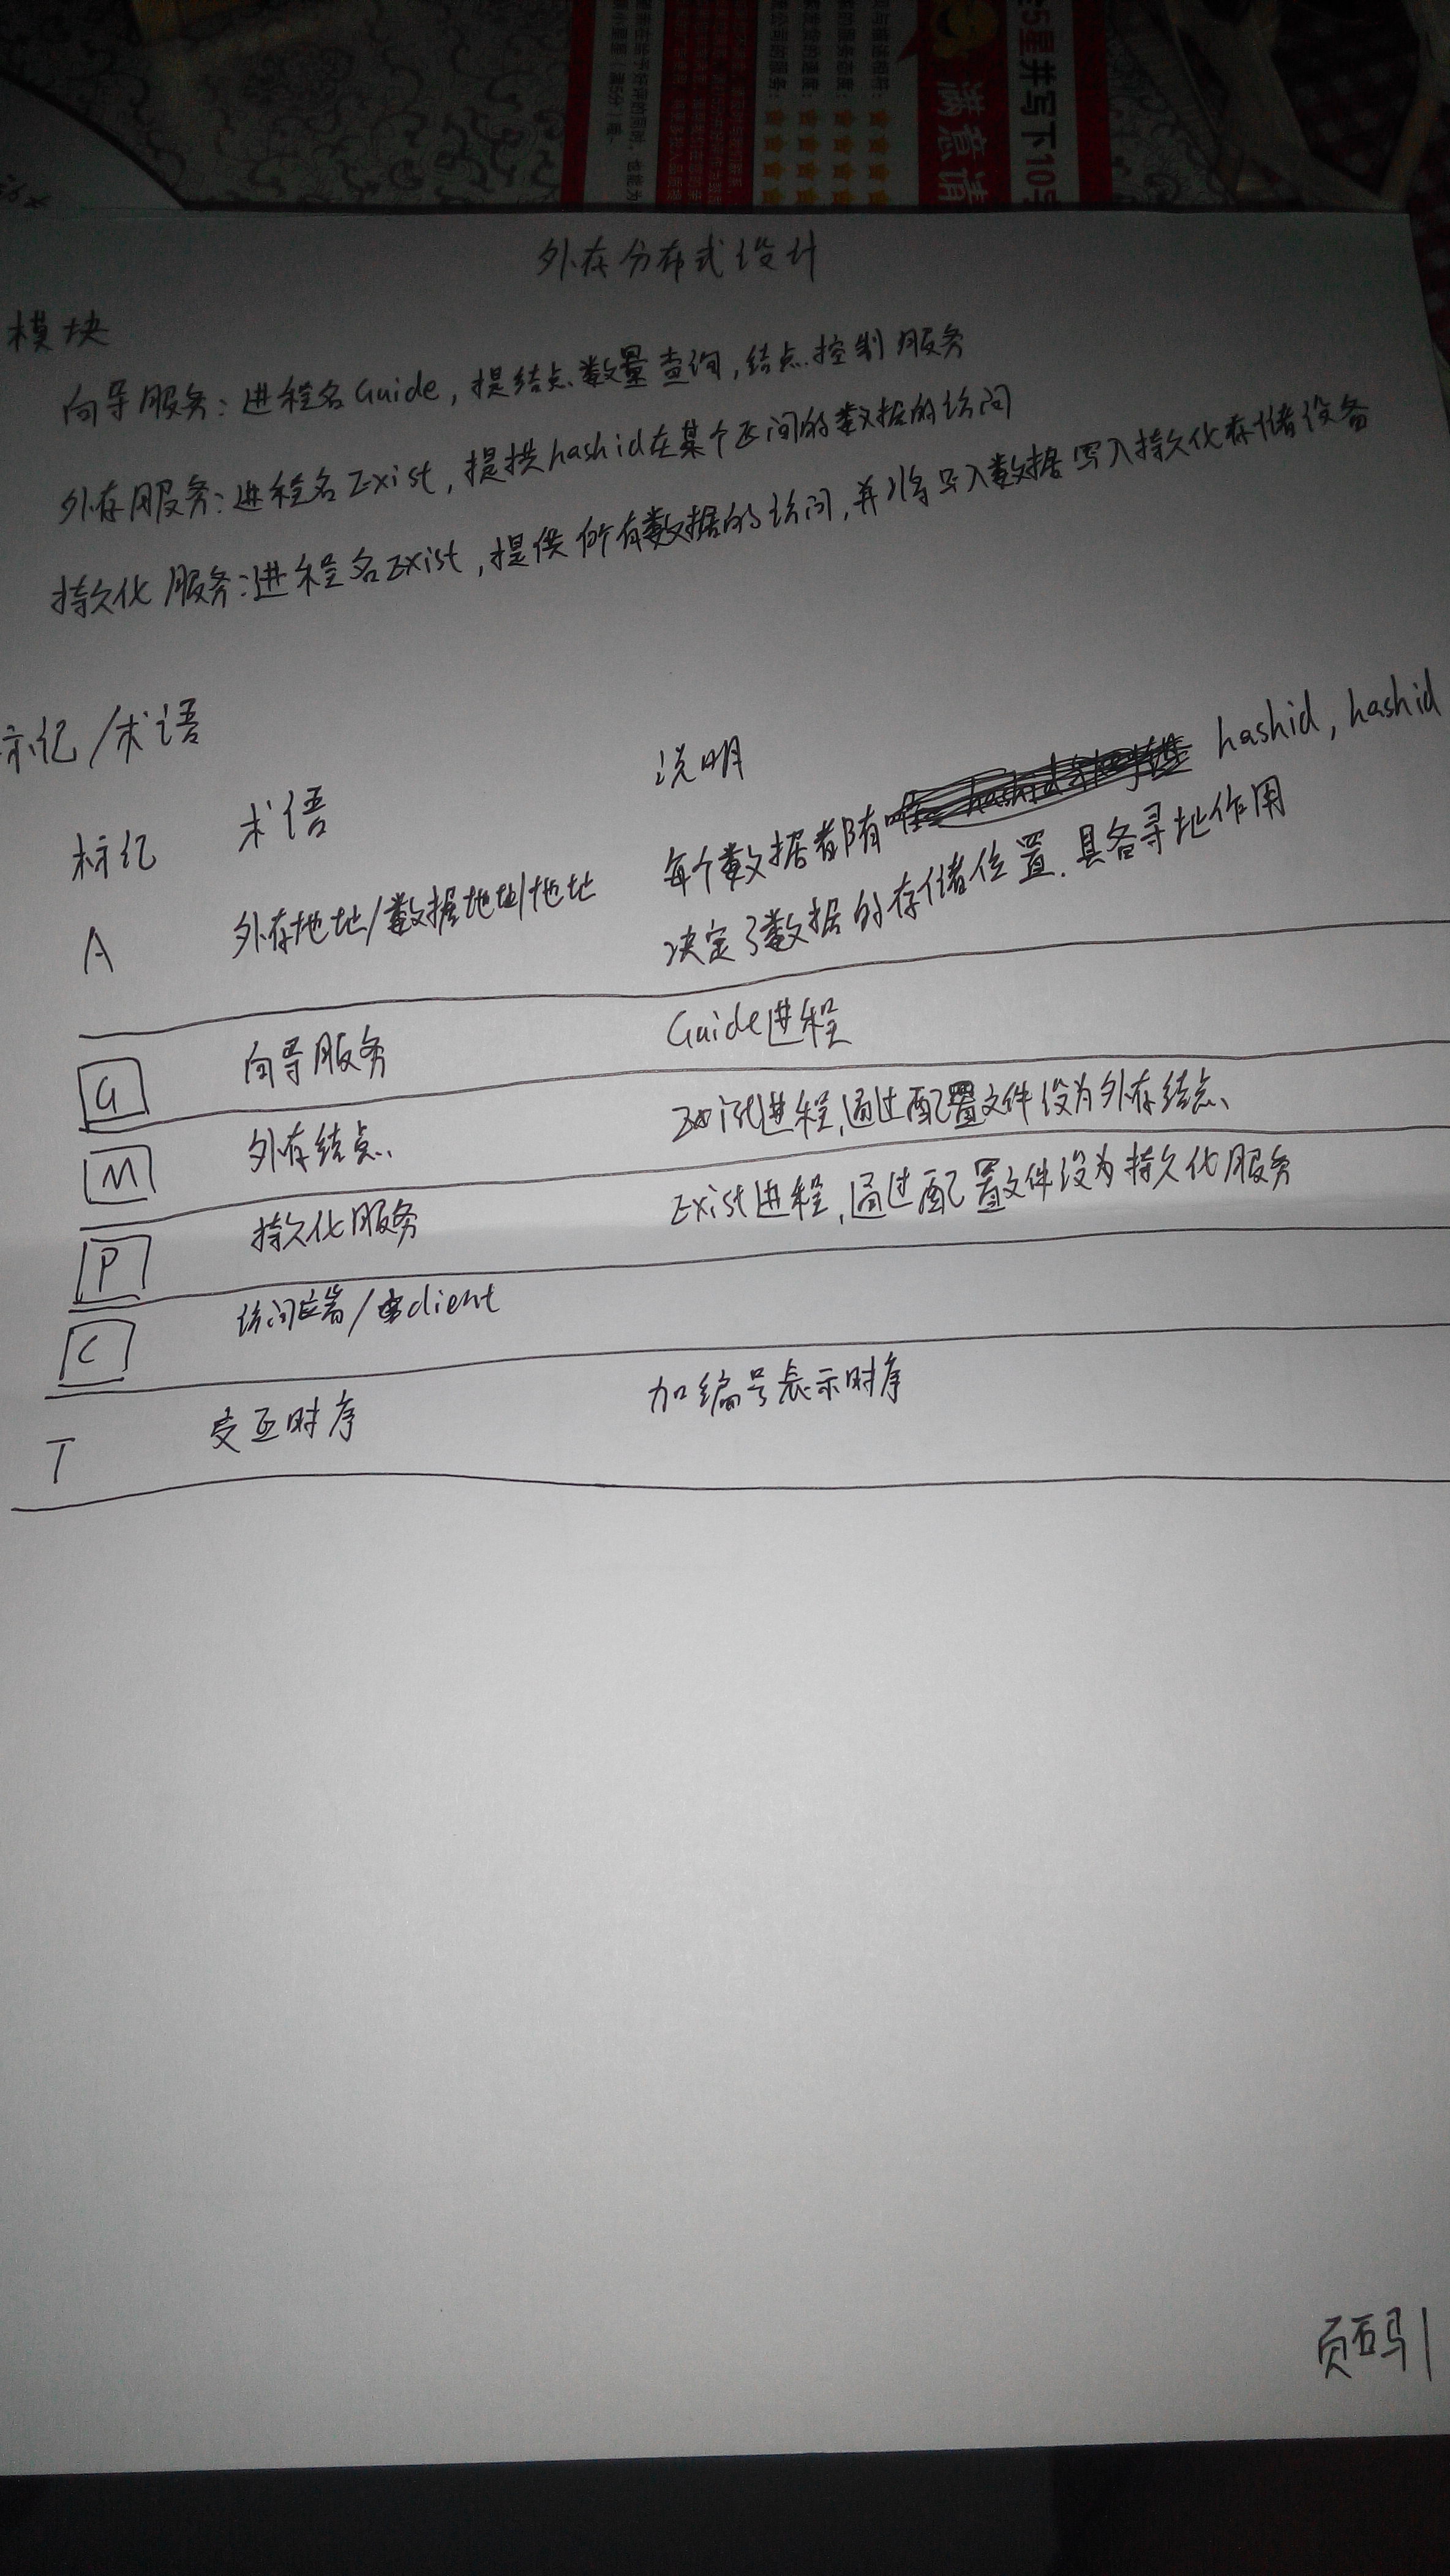 外存分布式设计
模块
向导服务：进程名Guide，提结点数量查询，结点控制服务
外存服务：进程名Exist，提拱hashid在某个区间的数据的访问
持久化服务：进程名Exist，提供所有数据的访问，并将写入数据写入持久化存储设备
标记/术语
标记 术语 说明
A 外存地址/数据地址/地址 每个数据都有 hashid，hashid
决定了数据的存储位置．具备寻址作用
G 向导服务 Guide进程
M 外存结点 Exist进程，通过配置文件设为外存结点
P 持久化服务 Exist进程，通过配置文件设为持久化服务
C 访问端/client
T 交互时序 加编号表示时序
页码1
5星并写下10字
满意请